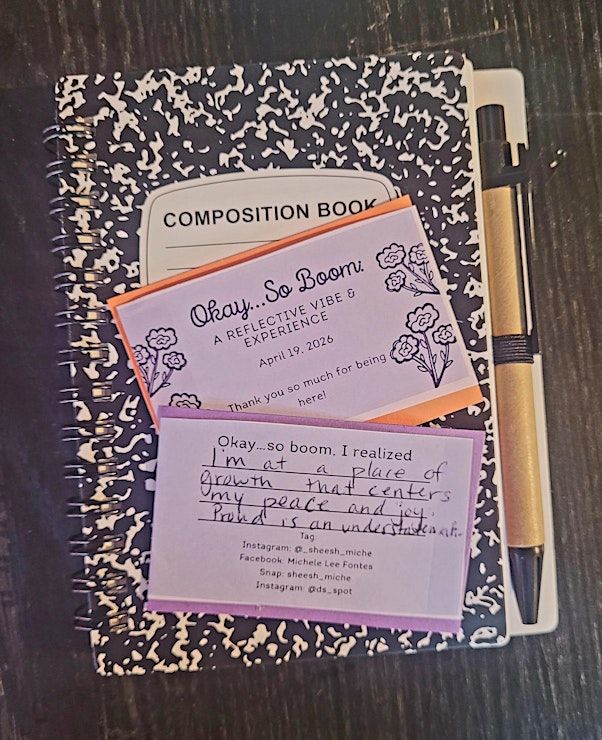 COMPOSITION BOOK
Okay...So Boom:
A REFLECTIVE VIBE &
EXPERIENCE
April 19, 2026
Thank you so much for being
here!
Okay...so boom, I realized
I'm at a place of
growth that centers
my peace and joy.
Proud is an understatement.
Tag:
Instagram: @_sheesh_miche
Facebook: Michele Lee Fontes
Snap: sheesh_miche
Instagram: @ds_spot